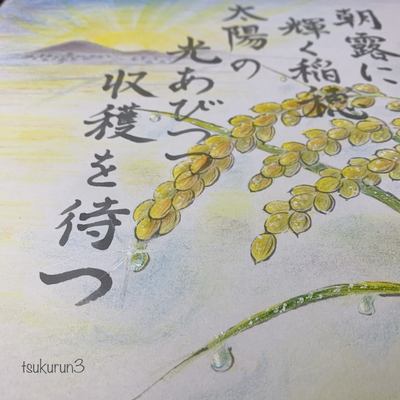 朝露に
輝く稲穂
太陽の
光あびつつ
収穫を待つ
tsukurun3